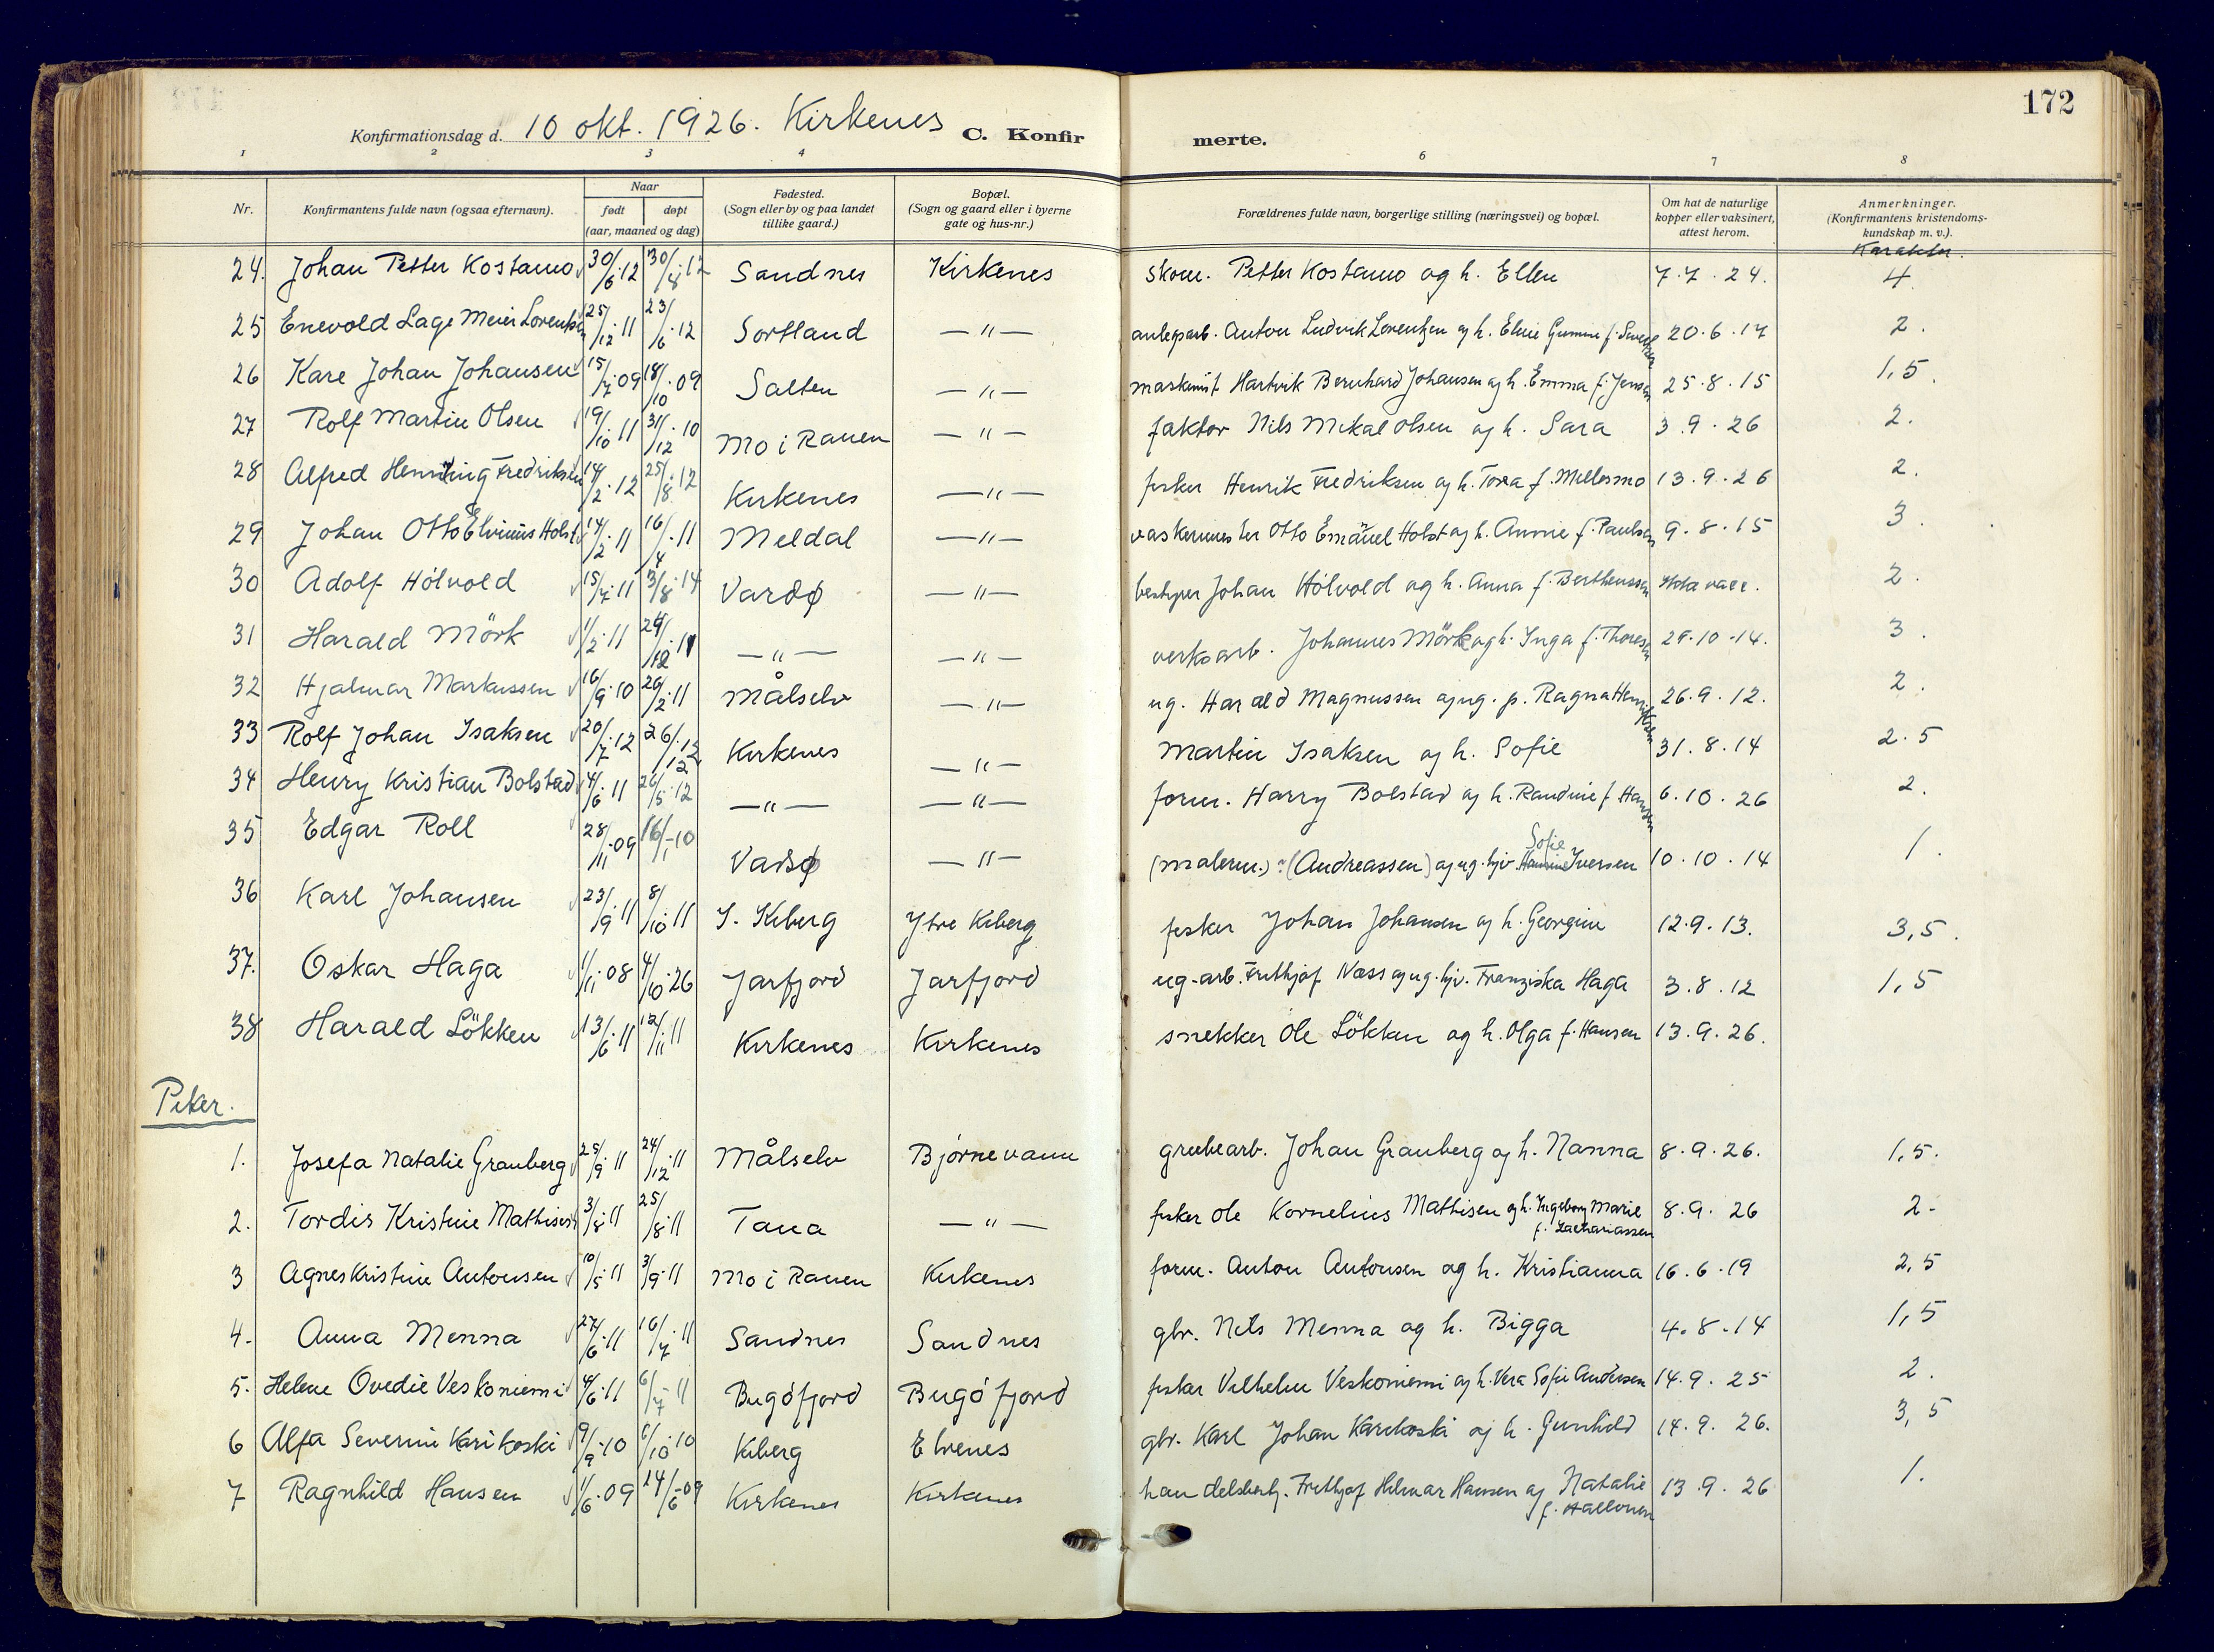 172
Konfirmationsdag d. 10 okt. 1926. Kirkenes C. Konfirmerte.
1 2 3 4 6 7 8
Nr. Konfirmantens fulde navn (ogsaa efternavn). Naar født døpt (aar, maaned og dag) Fødested. (Sogn eller by og paa landet tillike gaard.) Bopæl. (Sogn og gaard eller i byerne gate og hus-nr.) Forældrenes fulde navn, borgerlige stilling (næringsvei) og bopæl. Om hat de naturlige kopper eller vaksinert, attest herom. Anmerkninger. (Konfirmantens kristendomskundskap m. v.). Karakter.
24. Johan Petter Kostamo 30/6.12 30/8.12 Sandnes Kirkenes skom. Petter Kostamo og h. Ellen 7.7.24. 4
25 Enevold Lage Meier Lorentsen 25/12.11 23/6.12 Sortland —"— anlegsarb. Anton Ludvik Lorentzen og h. Eline Gumine f. 20.6.17 2.
26 Kare Johan Johansen 15/7.09 18/10.09 Salten —"— maskinist Hartvik Bernhard Johansen og h. Emma f. Jensen 25.8.15 1,5.
27 Rolf Martin Olsen 19/10.11 31/12.10 Mo i Ranen —"— faktor Nils Mikal Olsen og h. Sara 3.9.26 2.
28 Alfred Henning Fredriksen 14/2.12 25/8.12 Kirkenes —"— fisker Henrik Fredriksen og h. Tora f. Millesmo 13.9.26 2.
29 Johan Otto Elvinus Holst 14/2.11 16/4.11 Meldal —"— vaskermester Otto Emanuel Holst og h. Annie f. Paulsen 9.8.15 3.
30 Adolf Hölvold 15/7.11 3/8.14 Vardø —"— bestyrer Johan Hölvold og h. Anna f. Bertheussen 2.
31 Harald Mörk 1/2.11 29/12.11 —"— —"— verksarb. Johannes Mörk og h. Inga f. Thoresen 29.10.14. 3.
32 Hjalmar Markussen 16/9.10 26/2.11 Målselv —"— ug. Harald Magnussen og ug. p. Ragna Henriksen 26.9.12. 2.
33 Rolf Johan Isaksen 20/7.12 26/12.12 Kirkenes —"— Martin Isaksen og h. Sofie 31.8.14 2.5
34 Henry Kristian Bolstad 4/6.11 26/5.12 —"— —"— form. Harry Bolstad og h. Randine f. Hansen 6.10.26 2.
35 Edgar Roll 28/11.09 16/1-10 Vadsø —"— (malerm.) (Andreassen) og ug. hjv. Sofie Iversen 10.10.14 1.
36 Karl Johansen 23/9.11 8/10.11 Y. Kiberg Ytre Kiberg fisker Johan Johansen og h. Georgine 12.9.13. 3,5.
37. Oskar Haga 1/11.08 4/10.26 Jarfjord Jarfjord ug. arb. Frithjof Næss og ug. hjv. Franziska Haga 3.8.12 1,5
38 Harald Lökken 13/6.11 12/11.11 Kirkenes Kirkenes snekker Ole Lökken og h. Olga f. Hansen 13.9.26.
Piker.
1. Josefa Natalie Granberg 25/9.11 24/12.11 Målselv Bjørnevann grubearb. Johan Granberg og h. Nanna 8.9.26. 1,5.
2. Tordis Kristine Mathisen 3/8.11 25/8.11 Tana —"— fisker Ole Kornelius Mathisen og h. Ingeborg Marie f. Zachariassen 8.9.26 2-
3 Agnes Kristine Antonsen 10/5.11 3/9.11 Mo i Ranen Kirkenes form. Anton Antonsen og h. Kristianna 16.6.19 2,5
4. Anna Menna 27/6.11 16/7.11 Sandnes Sandnes gbr. Nils Menna og h. Bigga 4.8.14 1,5
5. Helene Ovedie Veskoniemi 4/6.11 6/7-11 Bugöfjord Bugöfjord fisker Vilhelm Veskoniemi og h. Vera Sofie Andersen 14.9.25 2.
6 Alfa Severine Karikoski 9/9.10 6/10.10 Kiberg Elvenes gbr. Karl Johan Karikoski og h. Gunhild 14.9.26. 3,5
7 Ragnhild Hansen 1/6.09 14/6-09 Kirkenes Kirkenes handelsbestj. Frithjof Hilmar Hansen og Natalie f. Hallonen 13.9.26 1.